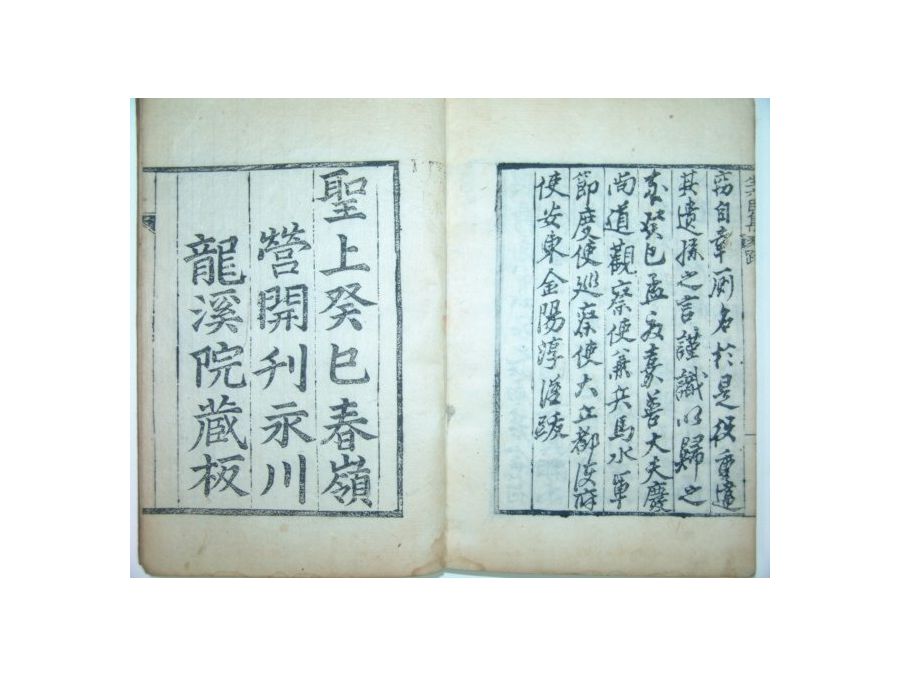 窃自幸厠名於是役重違
其遺孫之言謹識以歸之
癸巳孟夏嘉善大夫慶
尚道觀察使兼兵馬水軍
節度使巡察使大丘都護府
使安東金陽淳謹跋
聖上癸巳春嶺
營開刊永川
龍溪院藏板